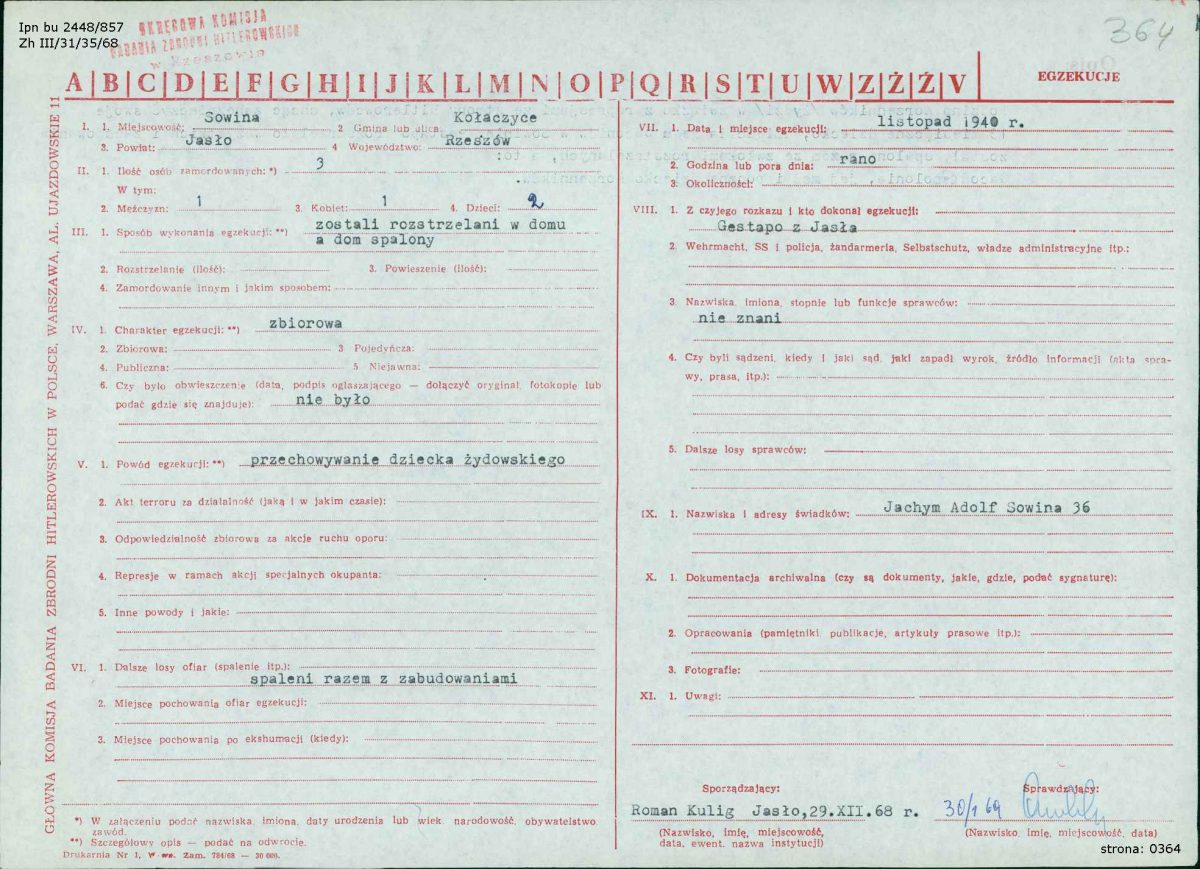 Ipn bu 2448/857
Zh III/31/35/68
OKRĘGOWA KOMISJA
BADANIA ZBRODNI HITLEROWSKICH
w Rzeszowie
364
A|B|C|D|E|F|G|H|I|J|K|L|M|N|O|P|Q|R|S|T|U|W|Z|Ź|Ż|V
EGZEKUCJE
GŁÓWNA KOMISJA BADANIA ZBRODNI HITLEROWSKICH W POLSCE, WARSZAWA, AL. UJAZDOWSKIE 11
I. 1. Miejscowość: Sowina 2 Gmina lub ulica: Kołaczyce
3. Powiat: Jasło 4 Województwo: Rzeszów
II. 1. Ilość osób zamordowanych: *) 3
W tym:
2. Mężczyzn: 1 3. Kobiet: 1 4. Dzieci: 2
III. 1. Sposób wykonania egzekucji: **) zostali rozstrzelani w domu
a dom spalony
2. Rozstrzelanie (ilość): 3. Powieszenie (ilość):
4. Zamordowanie innym i jakim sposobem:
IV. 1. Charakter egzekucji: **) zbiorowa
2. Zbiorowa: 3 Pojedyńcza:
4. Publiczna: 5 Niejawna:
6. Czy było obwieszczenie (data, podpis ogłaszającego — dołączyć oryginał, fotokopię lub
podać gdzie się znajduje): nie było
V. 1. Powód egzekucji: **) przechowywanie dziecka żydowskiego
2. Akt terroru za działalność (jaką i w jakim czasie):
3. Odpowiedzialność zbiorowa za akcje ruchu oporu:
4. Represje w ramach akcji specjalnych okupanta:
5. Inne powody i jakie:
VI. 1. Dalsze losy ofiar (spalenie itp.):
spaleni razem z zabudowaniami
2. Miejsce pochowania ofiar egzekucji:
3. Miejsce pochowania po ekshumacji (kiedy):
*) W załączeniu podać nazwiska, imiona, daty urodzenia lub wiek, narodowość, obywatelstwo,
zawód.
**) Szczegółowy opis — podać na odwrocie.
Drukarnia Nr 1, W-wa. Zam. 784/68 — 30 000.
VII. 1. Data i miejsce egzekucji: listopad 1940 r.
2. Godzina lub pora dnia: rano
3. Okoliczności:
VIII. 1. Z czyjego rozkazu i kto dokonał egzekucji:
Gestapo z Jasła
2. Wehrmacht, SS i policja, żandarmeria, Selbstschutz, władze administracyjne itp.:
3. Nazwiska, imiona, stopnie lub funkcje sprawców:
nie znani
4. Czy byli sądzeni, kiedy i jaki sąd, jaki zapadł wyrok, źródło informacji (akta spra-
wy, prasa, itp.):
5. Dalsze losy sprawców:
IX. 1. Nazwiska i adresy świadków: Jachym Adolf Sowina 36
X. 1. Dokumentacja archiwalna (czy są dokumenty, jakie, gdzie, podać sygnaturę):
2. Opracowania (pamiętniki, publikacje, artykuły prasowe itp.):
3. Fotografie:
XI. 1. Uwagi:
Sporządzający: Sprawdzający:
Roman Kulig Jasło,29.XII.68 r. 30/1 69
(Nazwisko, imię, miejscowość, (Nazwisko, imię, miejscowość, data)
data, ewent. nazwa instytucji)
strona: 0364